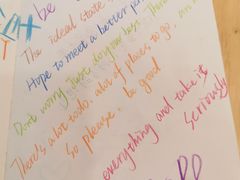 be
The ideeal state
Hope to meet a better
Don't worry. Just do your best. There
There's a lot todo. alot of places to go.
So please. be good
everything and take it
seriously